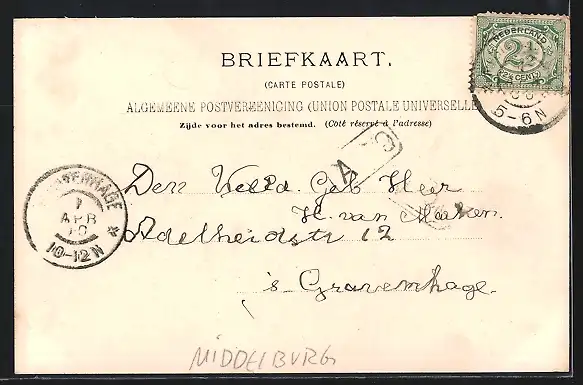 BRIEFKAART.
(CARTE POSTALE)
ALGEMEENE POSTVEREENIGING (UNION POSTALE UNIVERSELLE
Zijde voor het adres bestemd. (Côté réservé à l'adresse)
NEDERLAND
2½
(2½ CENT)
5-6N
GRAVENHAGE
1
APR
10-12N
A
Den Heer
H. van
Adelheidstr 12
's Gravenhage.
MIDDELBURG